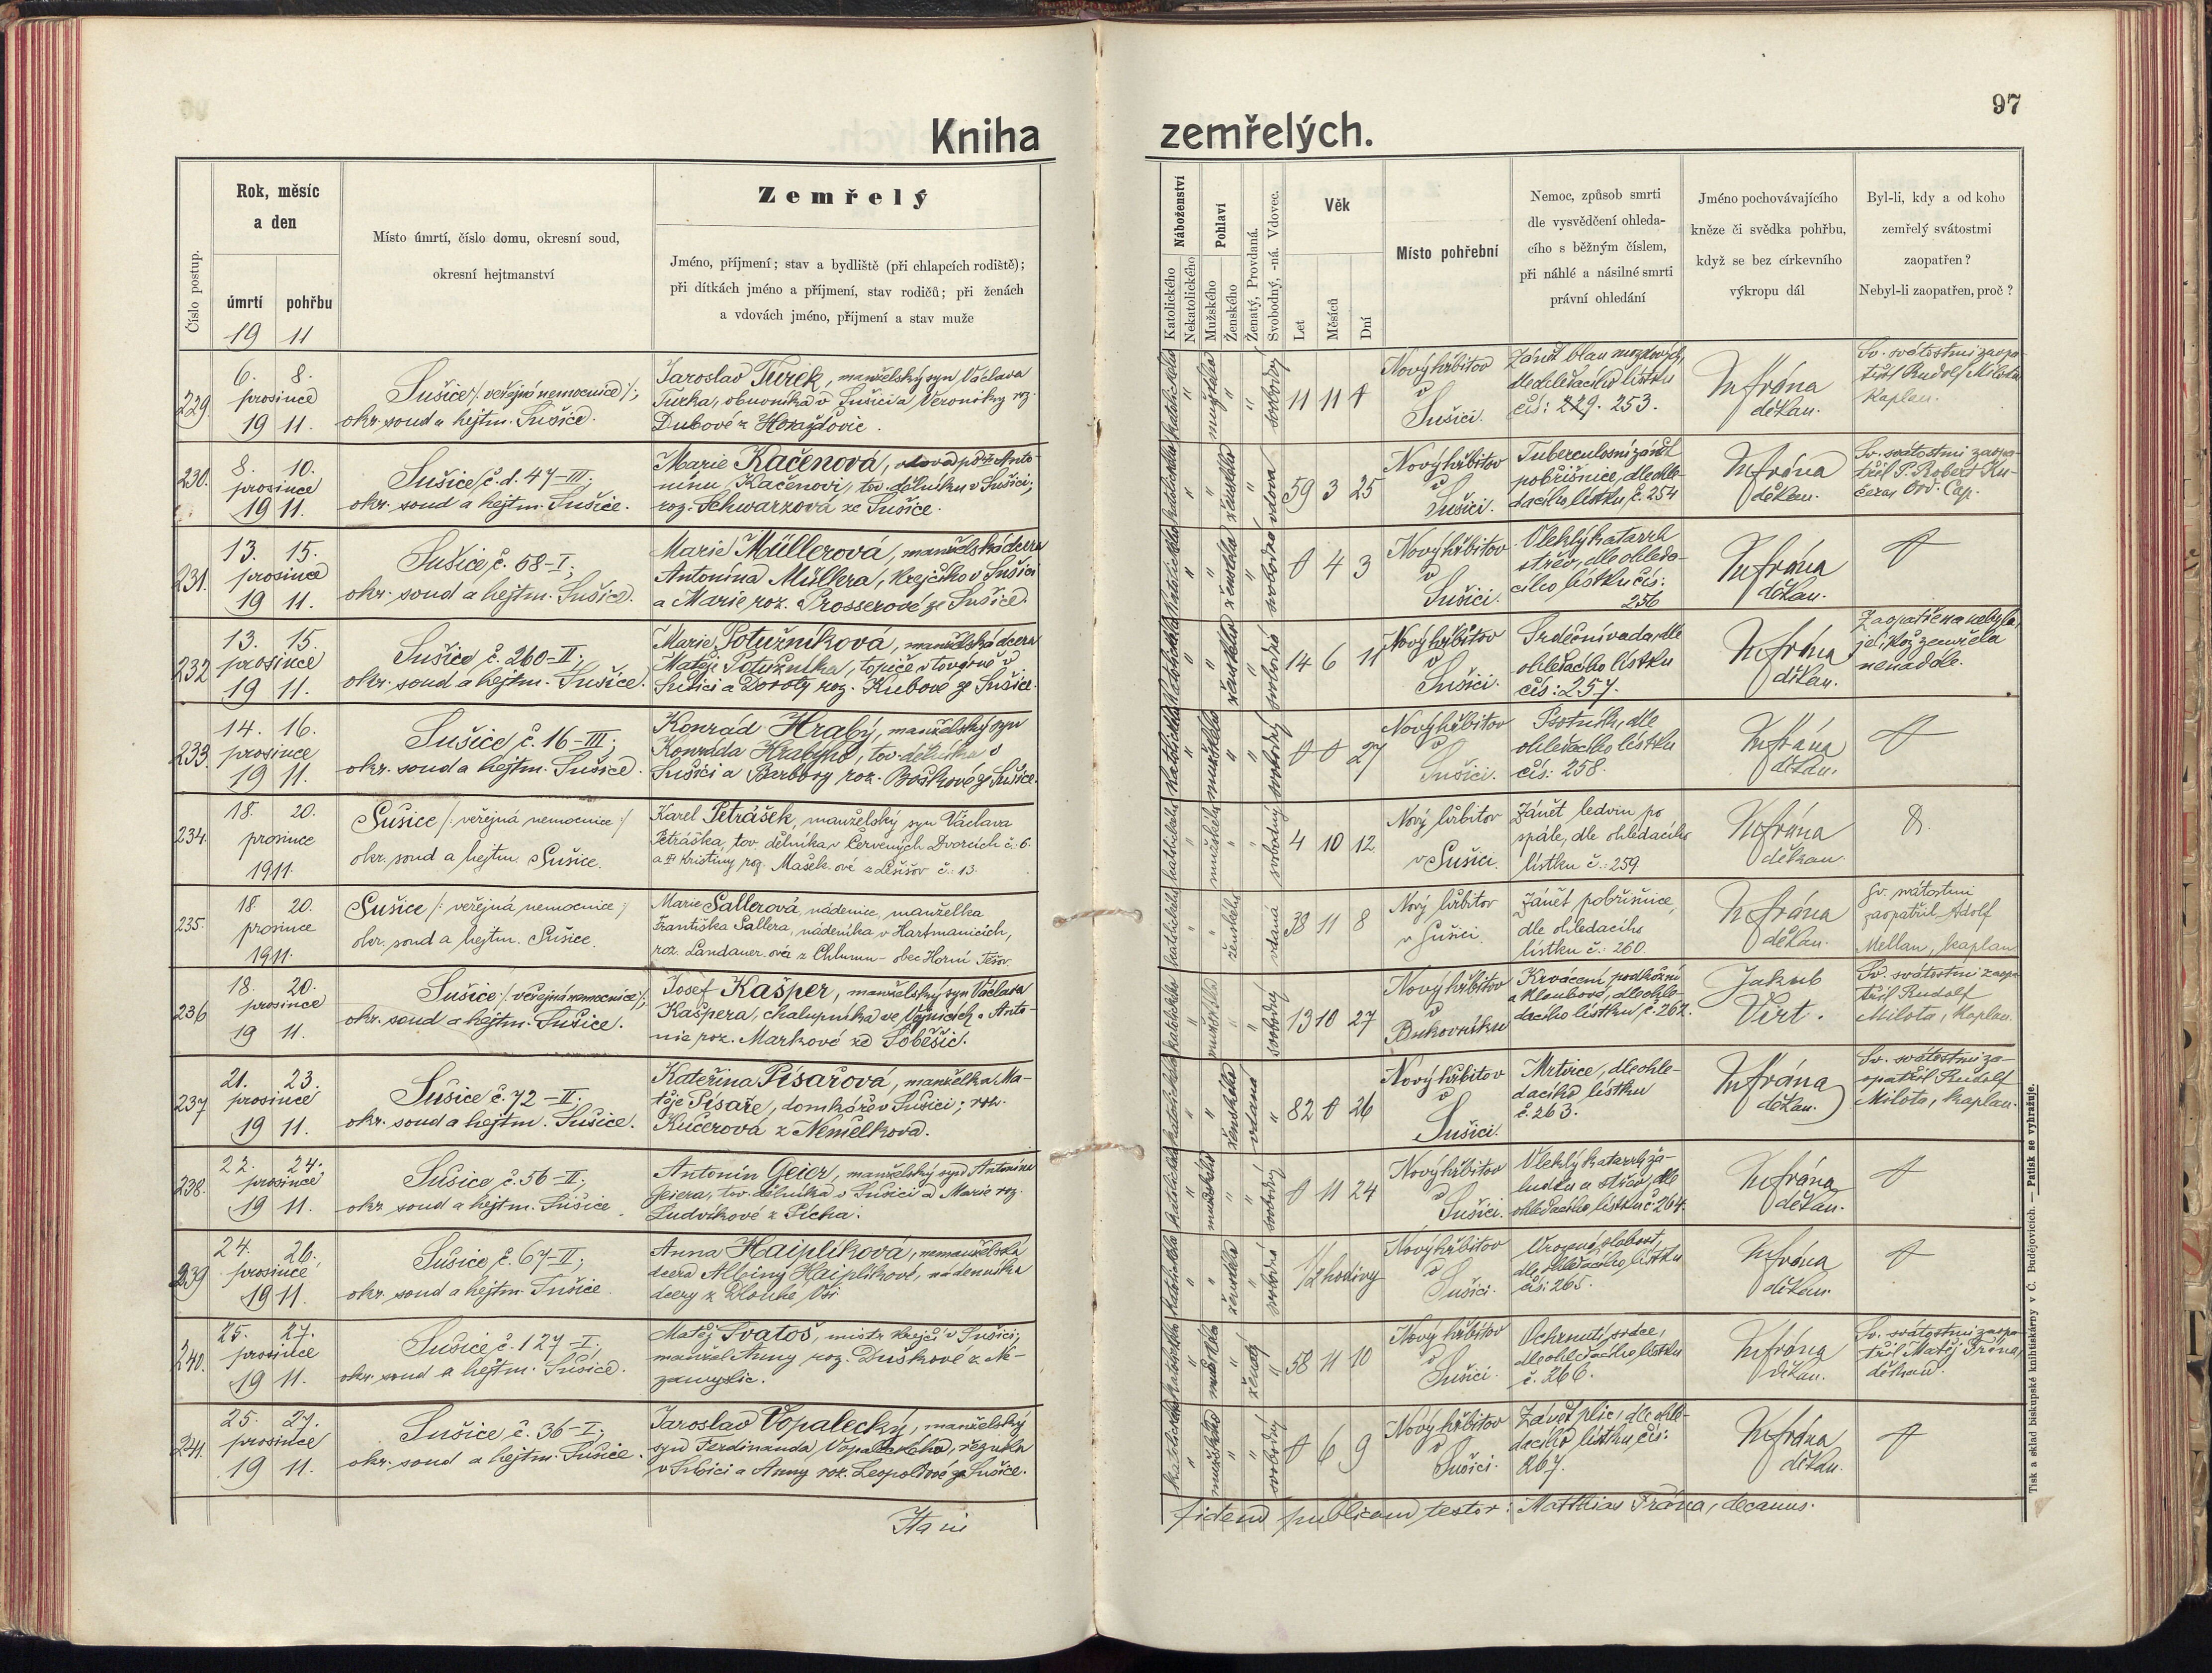 97
Kniha zemřelých.
Číslo postup.
Rok, měsíc
a den
úmrtí pohřbu
19 11
Místo úmrtí, číslo domu, okresní soud,
okresní hejtmanství
Zemřelý
Jméno, příjmení; stav a bydliště (při chlapcích rodiště);
při dítkách jméno a příjmení, stav rodičů; při ženách
a vdovách jméno, příjmení a stav muže
Náboženství
Katolického
Nekatolického
Pohlaví
Mužského
Ženského
Ženatý, Provdaná.
Svobodný, -ná. Vdovec.
Věk
Let
Měsíců
Dní
Místo pohřební
Nemoc, způsob smrti
dle vysvědčení ohleda-
cího s běžným číslem,
při náhlé a násilné smrti
právní ohledání
Jméno pochovávajícího
kněze či svědka pohřbu,
když se bez církevního
výkropu dál
Byl-li, kdy a od koho
zemřelý svátostmi
zaopatřen?
Nebyl-li zaopatřen, proč?
229.
6. 8.
prosince
19 11.
Sušice /: veřejná nemocnice :/;
okr. soud a hejtm. Sušice.
Jaroslav Turek, manželský syn Václava
Turka, obuvníka v Sušici a Veroniky roz.
Dubové z Horažďovic.
katolického " mužského " " svobodný
11 11 4
Nový hřbitov
v
Sušici.
Zánět blan mozkových,
dle ohledacího lístku
čís: 229. 253.
M Frána
děkan.
Sv. svátostmi zaopa-
třil Rudolf Milota
kaplan.
230.
8. 10.
prosince
19 11.
Sušice, č. d. 47-III;
okr. soud a hejtm. Sušice.
Marie Kačenová, vdova po Anto-
nínu Kačenovi, tov. dělníku v Sušici;
roz. Schwarzová ze Sušice.
katolického " " ženského " vdova
59 3 25
Nový hřbitov
v
Sušici.
Tuberculosní zánět
pobřišnice, dle ohle-
dacího lístku, č. 254
M Frána
děkan.
Sv. svátostmi zaopa-
třil P. Robert Ku-
čera, Ord. Cap.
231.
13. 15.
prosince
19 11.
Sušice, č. 68-I;
okr. soud a hejtm. Sušice.
Marie Müllerová, manželská dcera
Antonína Müllera, krejčího v Sušici
a Marie roz. Prosserové ze Sušice.
katolického " " ženského " svobodná
0 4 3
Nový hřbitov
v
Sušici.
Vleklý katarrh
střev, dle ohleda-
cího lístku čís:
256
M Frána
děkan.
232
13. 15.
prosince
19 11.
Sušice č. 260-II;
okr. soud a hejtm. Sušice.
Marie Potužníková, manželská dcera
Matěje Potužníka, topiče v továrně v
Sušici a Doroty roz. Kubové ze Sušice.
katolického " " ženského " svobodná
14 6 11
Nový hřbitov
v
Sušici.
Srdeční vada, dle
ohledacího lístku
čís: 257.
M Frána
děkan.
Zaopatřena nebyla,
jelikož zemřela
nenadále.
233.
14. 16.
prosince
19 11.
Sušice č. 16-III;
okr. soud a hejtm. Sušice.
Konrád Hrabý, manželský syn
Konráda Hrabýho, tov. dělníka v
Sušici a Barbory roz. Boškové ze Sušice.
katolického " mužského " " svobodný
0 0 27
Nový hřbitov
v
Sušici.
Psotník, dle
ohledacího lístku
čís: 258.
M Frána
děkan.
234.
18. 20.
prosince
1911.
Sušice /: veřejná nemocnice :/
okr. soud a hejtm. Sušice.
Karel Petrášek, manželský syn Václava
Petráška, tov. dělníka v Červených Dvorcích č: 6
a Kristiny roz. Mašek-ové z Lešišov č: 13.
katolického " mužského " " svobodný
4 10 12
Nový hřbitov
v Sušici.
Zánět ledvin po
spále, dle ohledacího
lístku č.: 259
M Frána
děkan.
235.
18. 20.
prosince
1911.
Sušice /: veřejná nemocnice :/
okr. soud a hejtm. Sušice.
Marie Sallerová, nádenice, manželka
Františka Sallera, nádeníka v Hartmanicích,
roz. Landauer-ová z Chlumu - obec Horní Těšov.
katolického " " ženského vdaná
38 11 8
Nový hřbitov
v Sušici.
Zánět pobřišnice,
dle ohledacího
lístku č.: 260.
M Frána
děkan.
Sv. svátostmi
zaopatřil Adolf
Mellan, kaplan
236
18. 20.
prosince
19 11.
Sušice /: veřejná nemocnice :/;
okr. soud a hejtm. Sušice.
Josef Kašper, manželský syn Václava
Kašpera, chalupníka ve Vojnicích a Anto-
nie roz. Markové ze Soběšic.
katolického " mužského " " svobodný
13 10 27
Nový hřbitov
v
Bukovníku
Krvácení podkožní
a kloubové, dle ohle-
dacího lístku, č. 262.
Jakub
Virt.
Sv. svátostmi zaopa-
třil Rudolf
Milota, kaplan.
237
21. 23.
prosince
19 11.
Sušice č. 72-II;
okr. soud a hejtm. Sušice.
Kateřina Písařová, manželka Ma-
těje Písaře, domkáře v Sušici; roz.
Kučerová z Nemelkova.
katolického " " ženského vdaná "
82 0 26
Nový hřbitov
v
Sušici.
Mrtvice, dle ohle-
dacího lístku
č. 263.
M Frána
děkan.
Sv. svátostmi za-
opatřil Rudolf
Milota, kaplan.
238.
22. 24.
prosince
19 11.
Sušice č. 56-II;
okr. soud a hejtm. Sušice.
Antonín Geier, manželský syn Antonína
Geiera, tov. dělníka v Sušici a Marie roz.
Ludvíkové z Sícha.
katolického " mužského " " svobodný
0 11 24
Nový hřbitov
v
Sušici.
Vleklý katarrh ža-
ludku a střev, dle
ohledacího lístku č. 264.
M Frána
děkan.
239
24. 26.
prosince
19 11.
Sušice, č. 67-II;
okr. soud a hejtm. Sušice.
Anna Haiplíková, nemanželská
dcera Albiny Haiplíkové, nádenníka
dcery z Dlouhé Vsi
katolického " " ženského " svobodná
1/2 hodiny
Nový hřbitov
v
Sušici.
Vrozená slabost,
dle ohledacího lístku
čís: 265.
M Frána
děkan.
240.
25. 27.
prosince
19 11.
Sušice č. 127-I;
okr. soud a hejtm. Sušice.
Matěj Svatoš, mistr krejčí v Sušici,
manžel Anny roz. Duškové z Ne-
zamyslic.
katolického " mužského " ženatý "
58 11 10
Nový hřbitov
v
Sušici.
Ochrnutí srdce,
dle ohledacího lístku
č. 266.
M Frána
děkan.
Sv. svátostmi zaopa-
třil Matěj Frána,
děkan.
241.
25. 27.
prosince
19 11.
Sušice č. 36-I;
okr. soud a hejtm. Sušice.
Jaroslav Vopalecký, manželský
syn Ferdinanda Vopaleckého, řezníka
v Sušici a Anny roz. Leopoldové ze Sušice.
katolického " mužského " " svobodný
0 6 9
Nový hřbitov
v
Sušici.
Zánět plic, dle ohle-
dacího lístku, čís:
267.
M Frána
děkan.
fidem publicam testor: Matthias Frána, decanus.
Tisk a sklad biskupské knihtiskárny v Č. Budějovicích. — Patisk se vyhražuje.